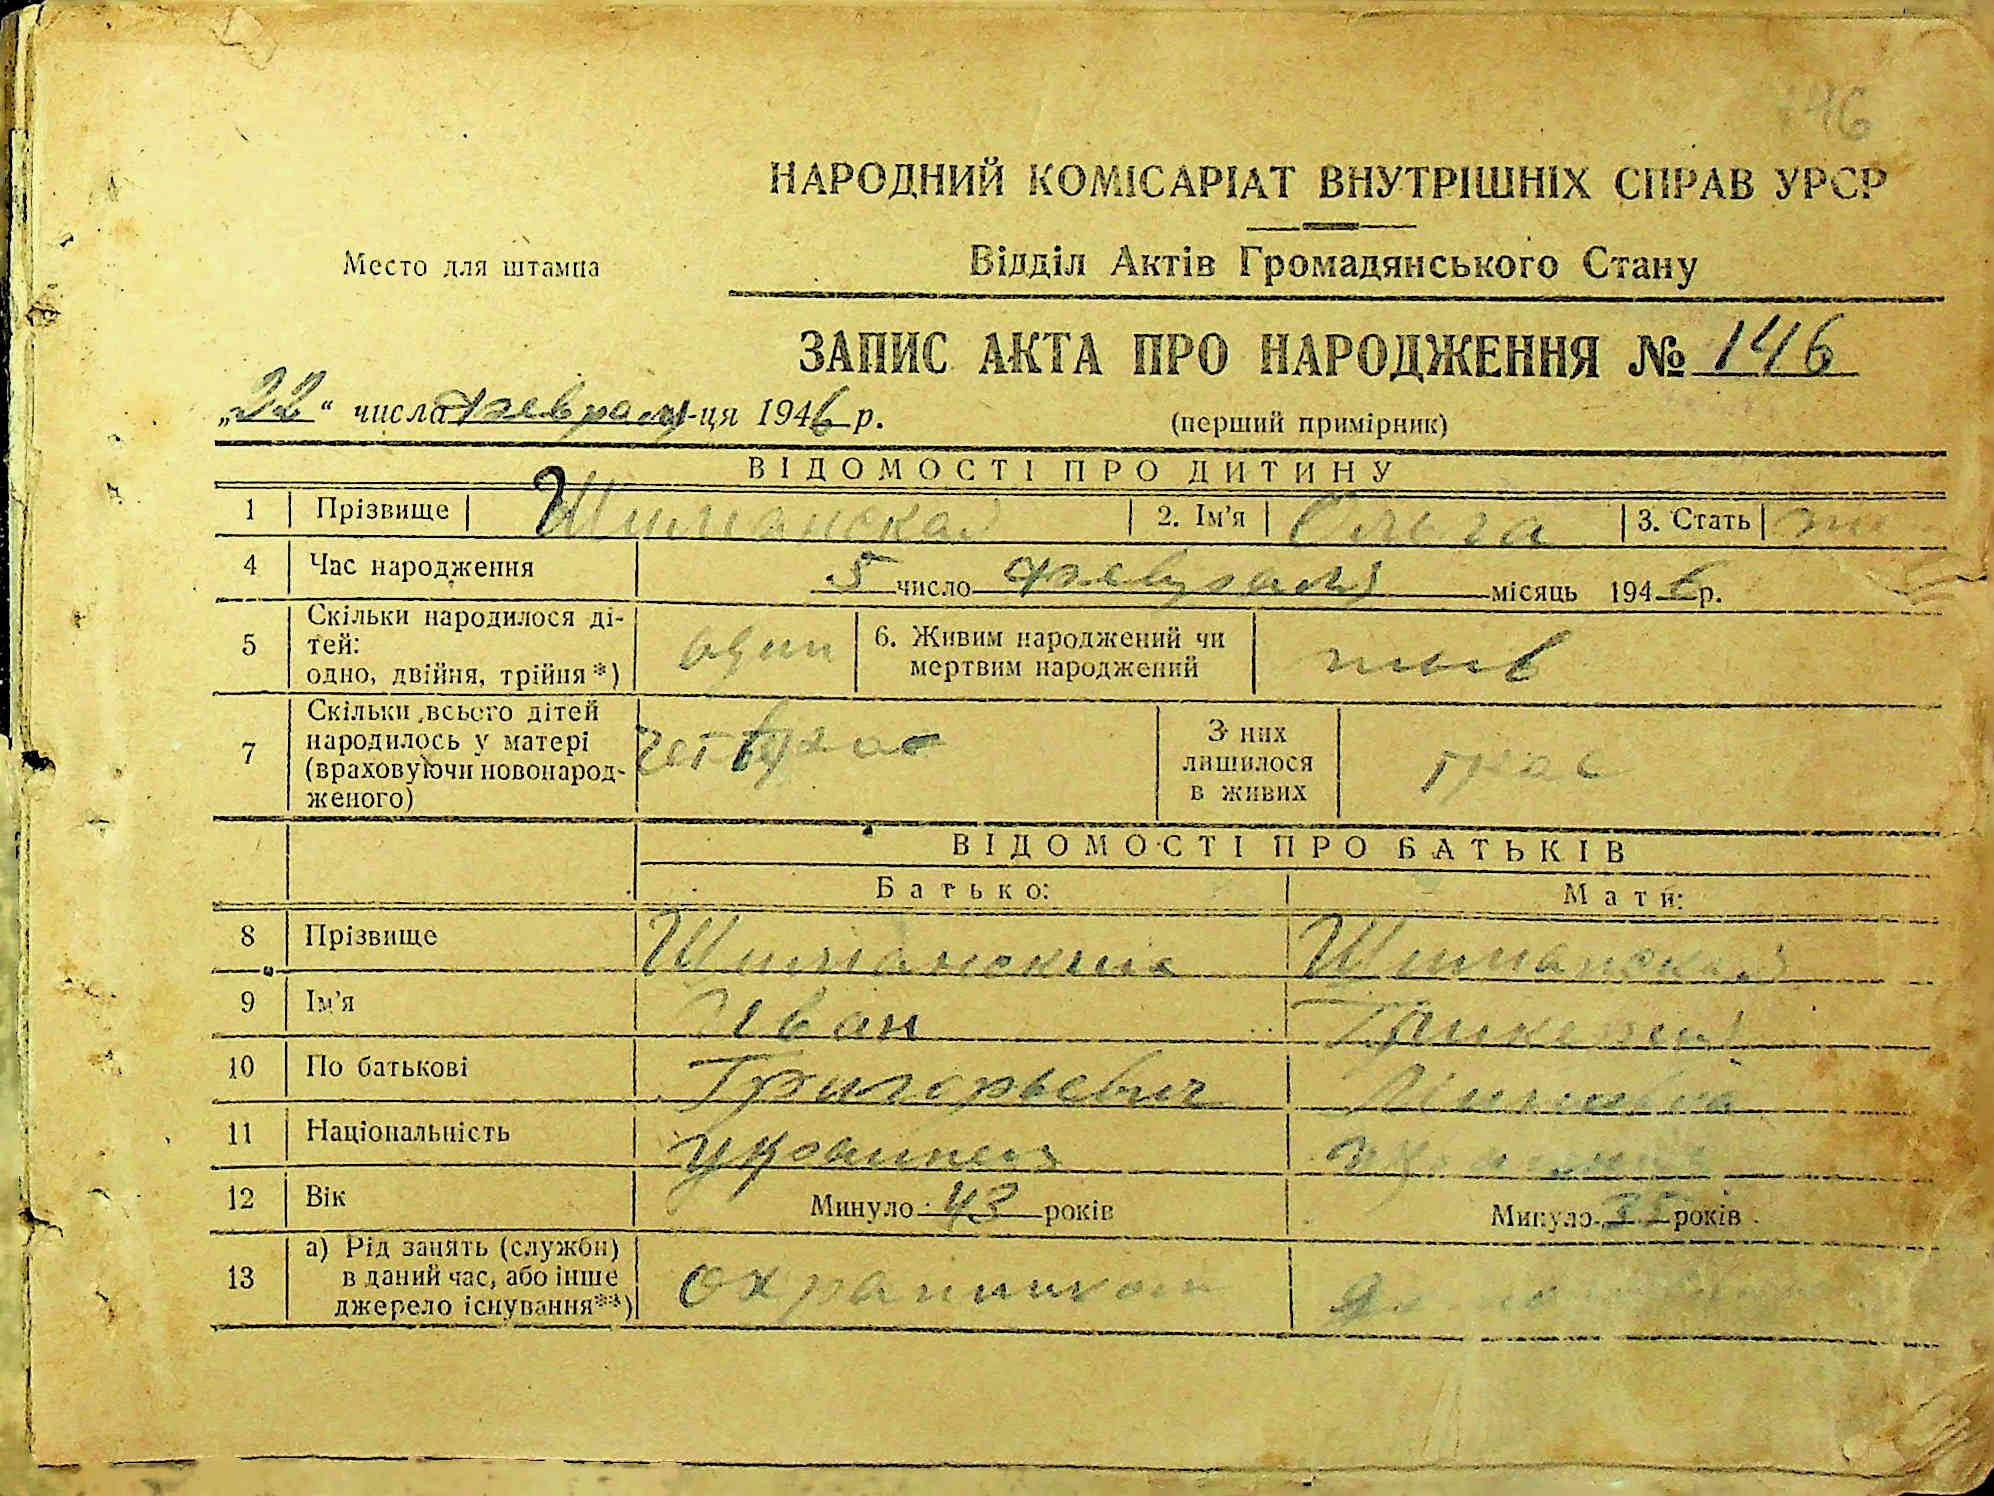 146
НАРОДНИЙ КОМІСАРІАТ ВНУТРІШНІХ СПРАВ УРСР
Место для штампа
Відділ Актів Громадянського Стану
ЗАПИС АКТА ПРО НАРОДЖЕННЯ № 146
„22“ числа февраля м-ця 1946 р.
(перший примірник)
ВІДОМОСТІ ПРО ДИТИНУ
1 Прізвище Шиманская 2. Ім'я Ольга 3. Стать
4 Час народження 5 число февраля місяць 1946 р.
5 Скільки народилося дітей: одно, двійня, трійня*) один 6. Живим народжений чи мертвим народжений жив
7 Скільки всього дітей народилось у матері (враховуючи новонародженого) четверо З них лишилося в живих трое
ВІДОМОСТІ ПРО БАТЬКІВ
Батько: Мати:
8 Прізвище Шиманский Шиманская
9 Ім'я Иван
10 По батькові Григорьевич
11 Національність украинец
12 Вік Минуло 43 років Минуло 35 років
13 а) Рід занять (служби) в даний час, або інше джерело існування**)